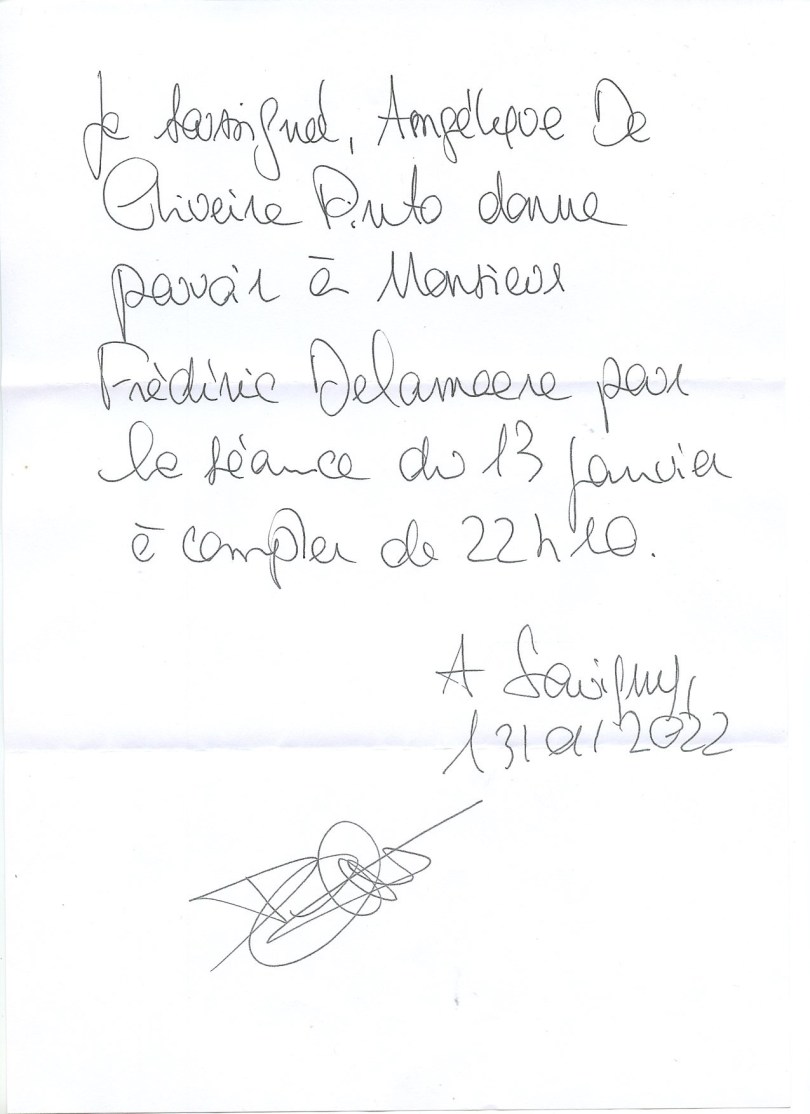 Je soussigné, Angélique De
Oliveira Pinto donne
pouvoir à Monsieur
Frédéric Delameere pour
la séance du 13 janvier
à compter de 22h10.
A Savigny,
13/01/2022